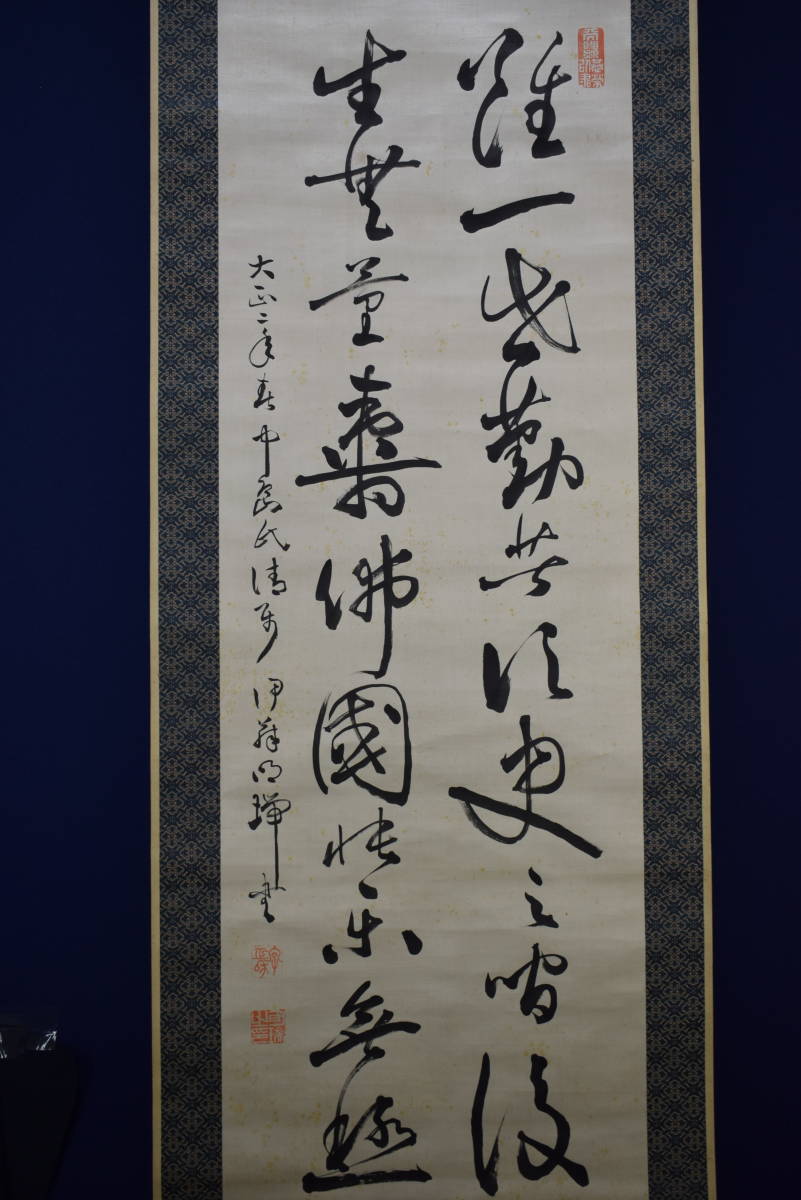 雖一世勤苦須臾之間後
生無量壽佛國快樂無極
大正二年春中島氏清属 伊藤明瑞書